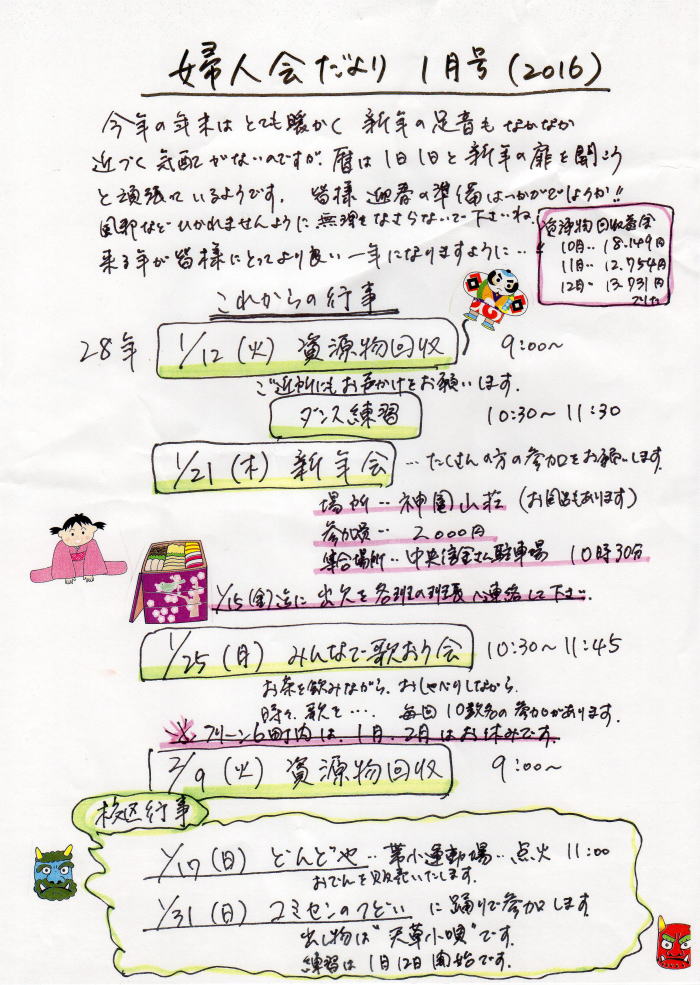 婦人会だより 1月号(2016)
今年の年末はとても暖かく 新年の足音もなかなか
近づく気配がないのですが、暦は1日1日と新年の扉を開こう
と頑張っているようです。 皆様 迎春の準備はいかがでしょうか!!
風邪などひかれませんように無理をなさらないで下さいね。
来る年が皆様にとってより良い一年になりますように…
資源物回収益金
10月‥ 18.149円
11月‥ 12.754円
12月‥ 13.731円
でした
これからの行事
28年 1/12(火) 資源物回収 9:00~
ご近所にもお声かけをお願いします。
ダンス練習 10:30~11:30
1/21(木) 新年会 …たくさんの方の参加をお願いします。
場所‥神園山荘(お風呂もあります)
参加費‥ 2000円
集合場所‥中央信金さん駐車場 10時30分
1/15(金)迄に出欠を各班の班長へ連絡して下さい。
1/25(月) みんなで歌おう会 10:30~11:45
お茶を飲みながら、おしゃべりしながら、
時々、歌を…. 毎回10数名の参加があります。
※クリーン6町内は、1月、2月はお休みです。
2/9(火) 資源物回収 9:00~
校区行事
1/17(日) どんどや‥帯小運動場‥点火 11:00
おでんを販売いたします。
1/31(日) コミセンのつどい に踊りで参加します
出し物は"天草小唄"です。
練習は1月12日開始です。